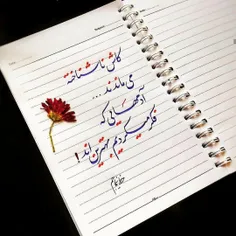 کاش ناشناخته
می ماندند ...
آدمهایی که
فکر میکردیم بهترین اند !